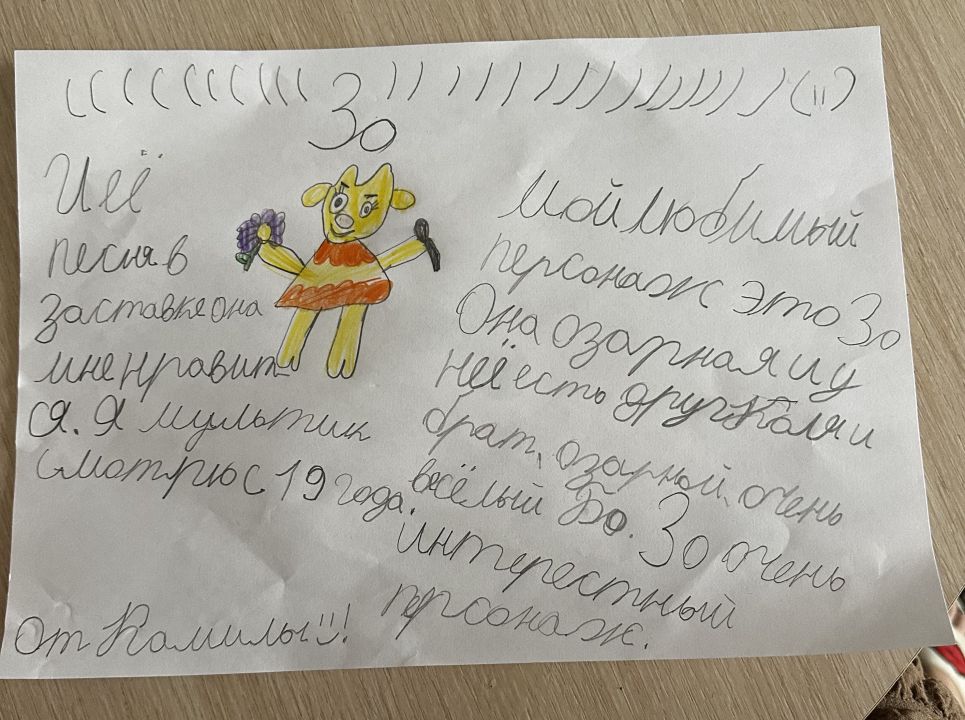 ((((((((( )))))))))))))))))) (||)
Зо
Иеё
песня в
заставке она
мне нравит
ся. Я мультик
смотрю с 19 года.
Мой любимый
персонаж это Зо
Она озарная и у
неё есть друг Коля и
брат, озарной, очень
весёлый Бо. Зо очень
интерестный
персонаж.
От Камилы!!!